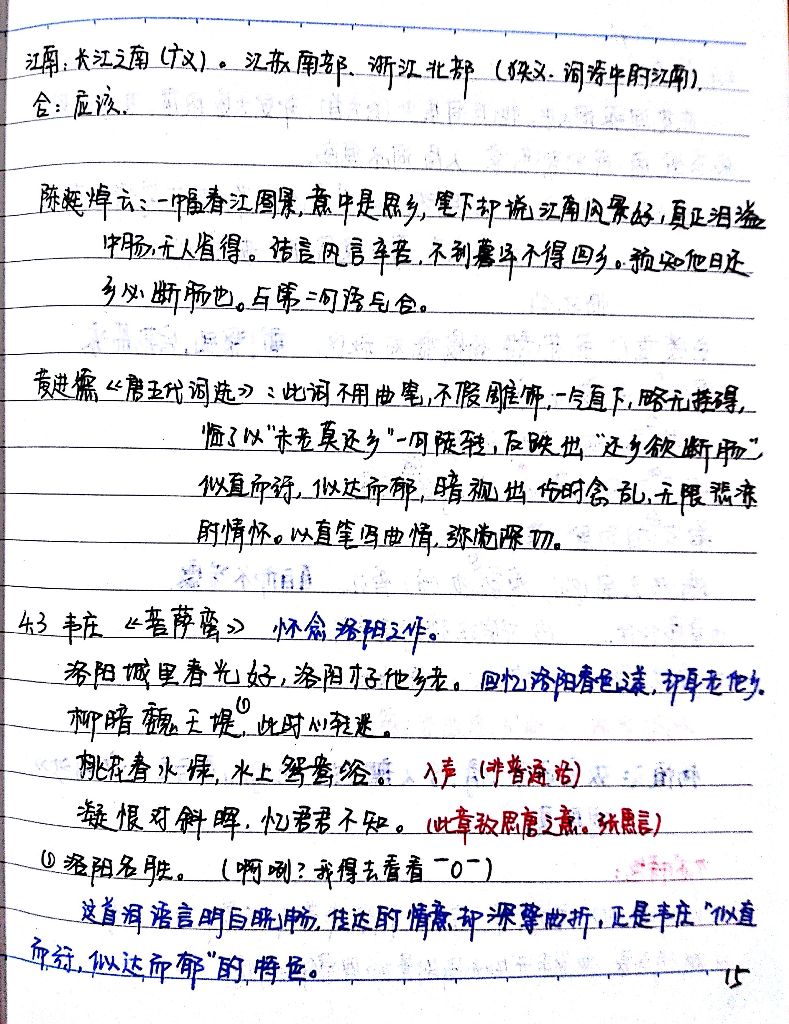 江南：长江之南（广义）。江苏南部、浙江北部（狭义．词源中的江南）．
合：应该．
陈廷焯云：一幅春江图景，意中是思乡，笔下却说江南风景好，真正泪溢
中肠，无人省得。结言风言辛苦，不到暮年不得回乡。预知他日还
乡必断肠也。与第二句语气合。
黄进德《唐五代词选》：此词不用曲笔，不假雕饰，一气直下，略无挂碍，
临了以“未老莫还乡”一句陡转，反跌出“还乡欲断肠”，
似直而纡，似达而郁，暗视出伤时念乱，无限悲凉
的情怀。以直笔写曲情，弥觉深切。
43 韦庄《菩萨蛮》 怀念洛阳之作。
洛阳城里春光好，洛阳才子他乡老。 回忆洛阳春色之美，却身老他乡．
柳暗魏王堤①，此时心转迷。
桃花春水绿，水上鸳鸯浴。 入声（非普通话）
凝恨对斜晖，忆君君不知。（此章致思唐之意。张惠言）
①洛阳名胜。（啊咧？我得去看看 ￣O￣）
这首词语言明白晓畅，传达的情意却深挚曲折，正是韦庄“似直
而纡，似达而郁”的特色。
15